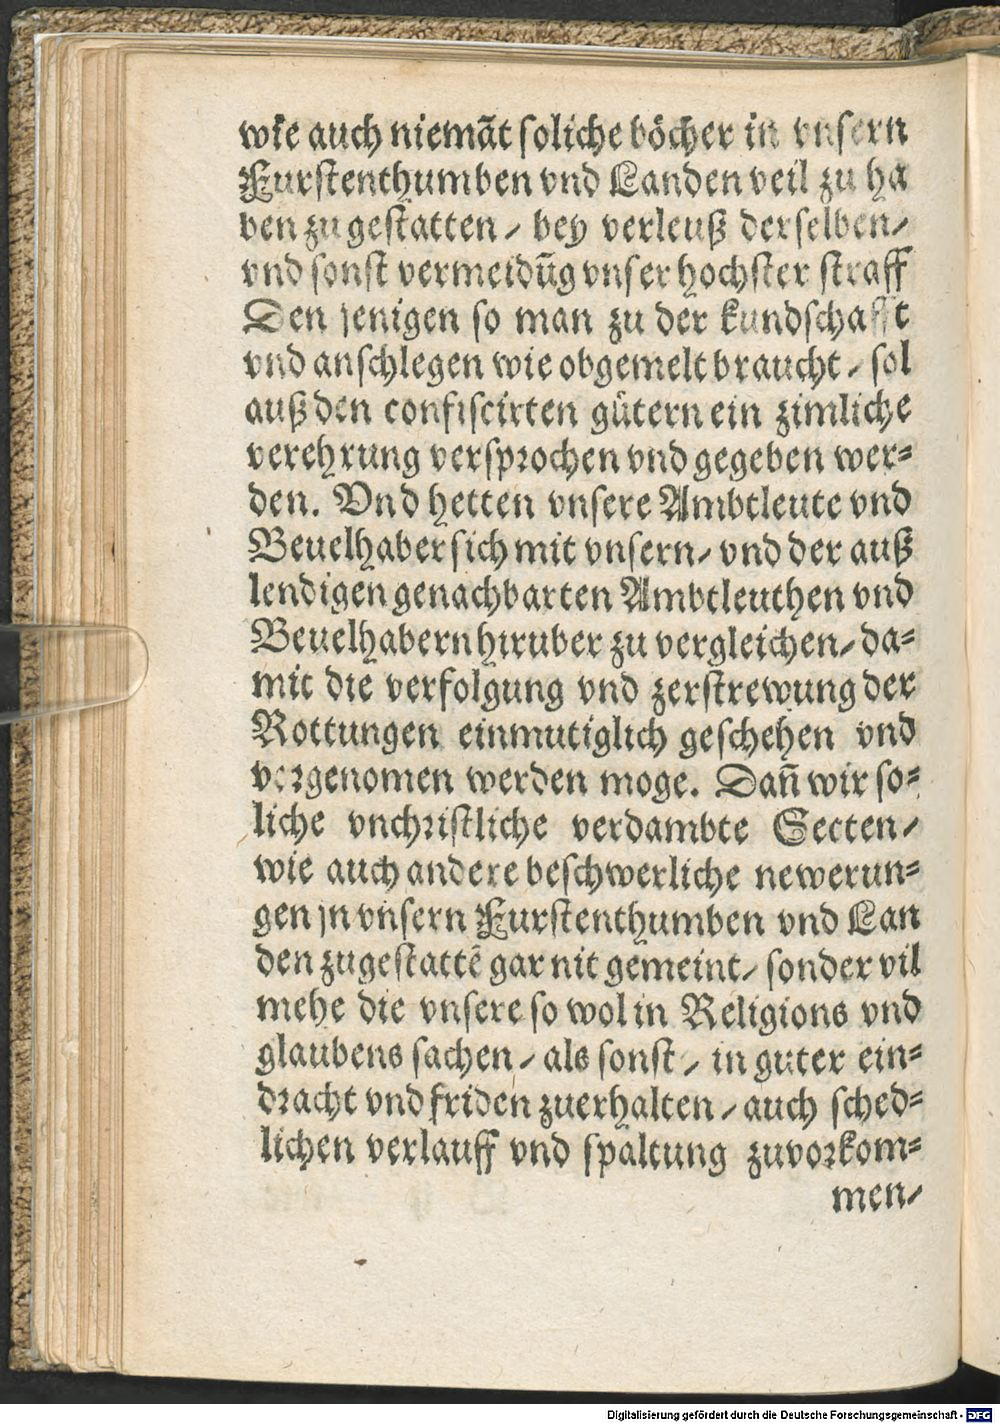 wie auch niemãt soliche böcher in vnsern
Furstenthumben vnd Landen veil zu ha
ben zu gestatten / bey verleuß derselben /
vnd sonst vermeidũg vnser hochster straff
Den jenigen so man zu der kundschafft
vnd anschlegen wie obgemelt braucht / sol
auß den confiscirten gütern ein zimliche
verehrung versprochen vnd gegeben wer=
den. Vnd hetten vnsere Ambtleute vnd
Beuelhaber sich mit vnsern / vnd der auß
lendigen genachbarten Ambtleuthen vnd
Beuelhabern hiruber zu vergleichen / da=
mit die verfolgung vnd zerstrewung der
Rottungen einmutiglich geschehen vnd
vorgenomen werden moge. Dañ wir so=
liche vnchristliche verdambte Secten /
wie auch andere beschwerliche newerun=
gen jn vnsern Furstenthumben vnd Lan
den zugestattẽ gar nit gemeint / sonder vil
mehe die vnsere so wol in Religions vnd
glaubens sachen / als sonst / in guter ein=
dracht vnd friden zuerhalten / auch sched=
lichen verlauff vnd spaltung zuvorkom=
men /
Digitalisierung gefördert durch die Deutsche Forschungsgemeinschaft - DFG